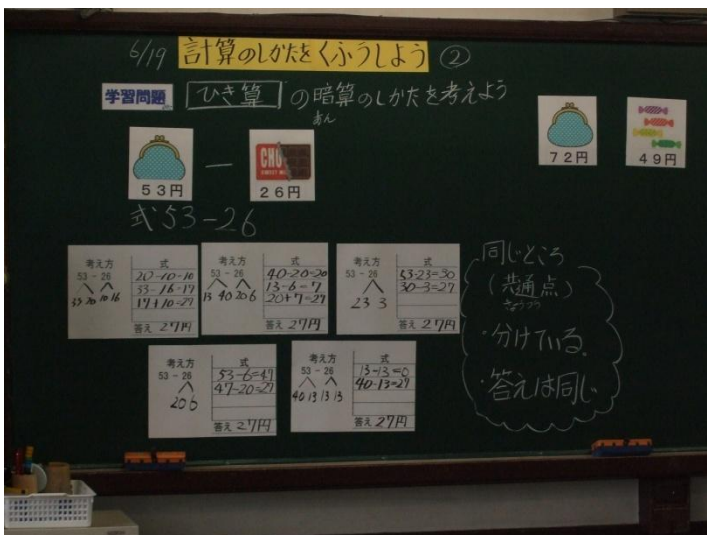 6/19 計算のしかたをくふうしよう ②
学習問題 ひき算 の暗算のしかたを考えよう
あん
53円 － CHO 26円
72円
49円
式 53-26
考え方 式
53 － 26
33 20 10 16
20-10=10
33-16=17
17+10=27
答え 27円
考え方 式
53 － 26
13 40 20 6
40-20=20
13-6=7
20+7=27
答え 27円
考え方 式
53 － 26
23 3
53-23=30
30-3=27
答え 27円
考え方 式
53 － 26
20 6
53-6=47
47-20=27
答え 27円
考え方 式
53 － 26
40 13 13 13
13-13=0
40-13=27
答え 27円
同じところ
(共通点)
きょうつう
・分けている。
・答えは同じ